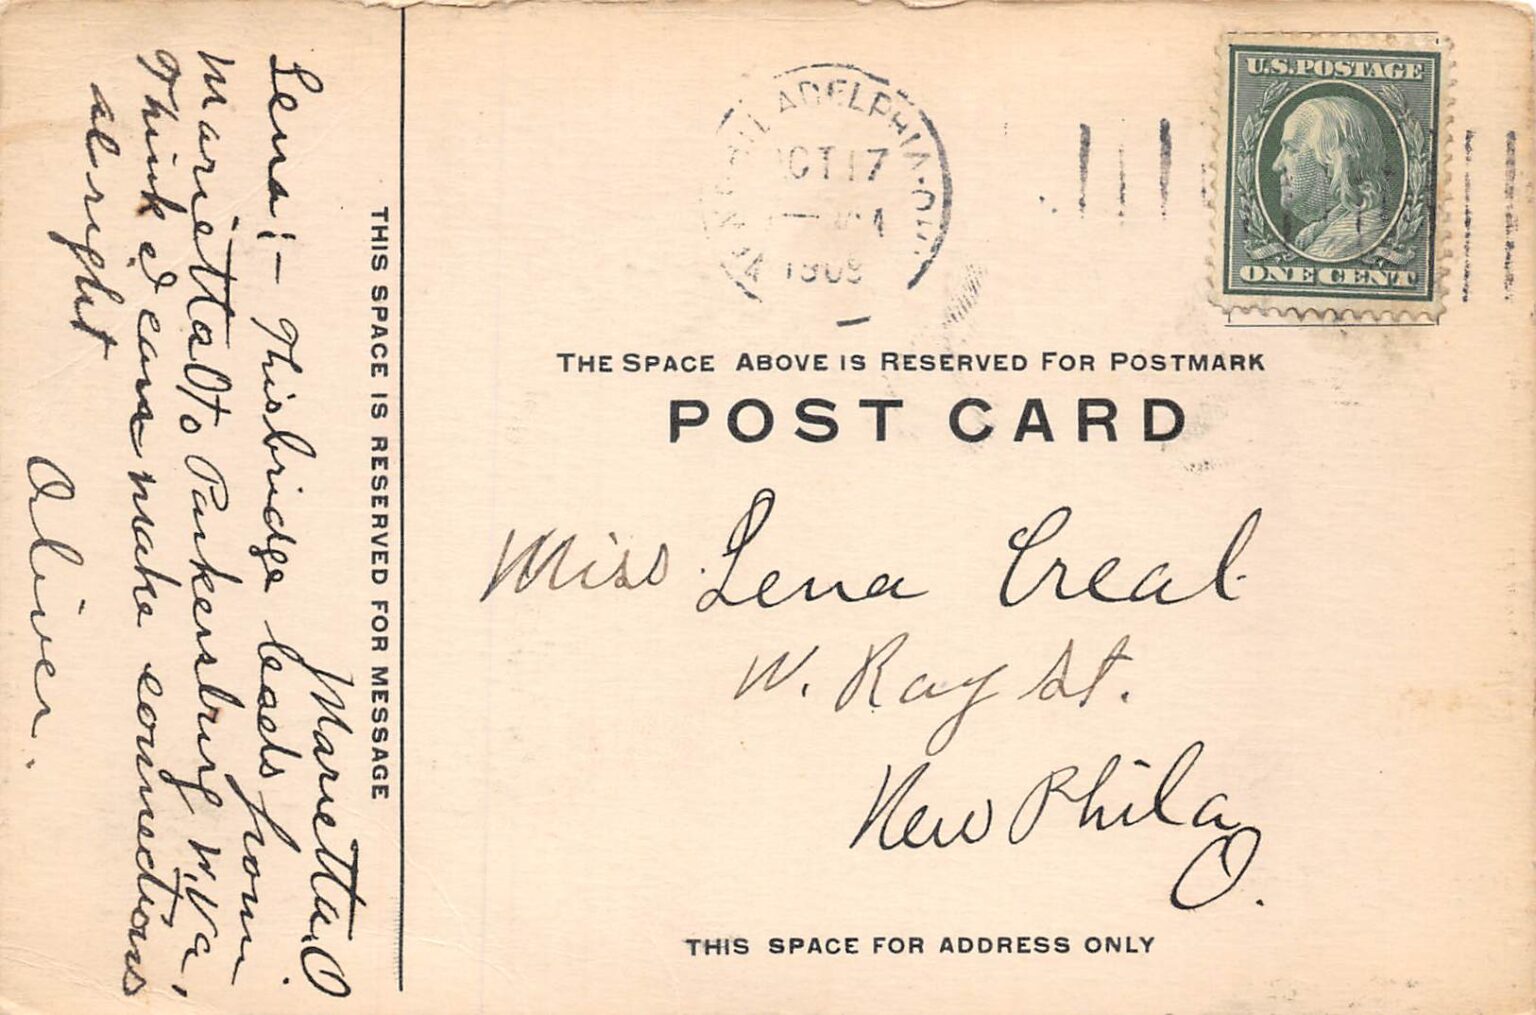 Marietta, O.
Lena:- This bridge leads from
Marietta O to Parkersburg W. Va,
Think I can make connections
al right
Oliver.
THIS SPACE IS RESERVED FOR MESSAGE
ADELPHIA
OCT 17
U.S. POSTAGE
ONE CENT
THE SPACE ABOVE IS RESERVED FOR POSTMARK
POST CARD
Miss Lena Creal
W. Ray St.
New Phila
O.
THIS SPACE FOR ADDRESS ONLY